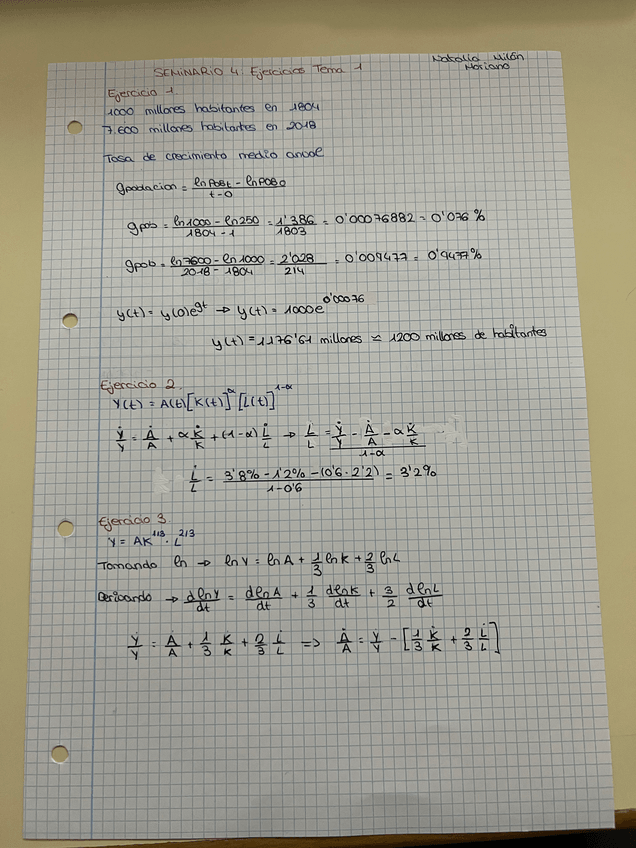 Natalia Milán
Moriano
SEMINARIO 4 Ejercicios Tema 1
Ejercicio 1.
1000 millones habitantes en 1804
7.600 millones habitantes en 2018
Tasa de crecimiento medio anual
gpoblacion = (ln POBt - ln POB0)/(t-0)
gpob = (ln 1000 - ln 250)/(1804 - 1) = 1'386/1803 = 0'00076882 = 0'076 %
gpob = (ln 7600 - ln 1000)/(2018 - 1804) = 2'028/214 = 0'009477 = 0'9477%
y(t) = y(0)e^gt → y(t) = 1000e^0'00076
y(t) = 1176'61 millones ≈ 1200 millones de habitantes
Ejercicio 2.
Y(t) = A(t)[K(t)]^α [L(t)]^1-α
Ẏ/Y = Ȧ/A + α K̇/K + (1-α) L̇/L → L̇/L = (Ẏ/Y - Ȧ/A - α K̇/K)/(1-α)
L̇/L = (3'8% - 1'2% - (0'6 · 2'2))/(1-0'6) = 3'2%
Ejercicio 3.
Y = AK^1/3 · L^2/3
Tomando ln → ln Y = ln A + 1/3 ln K + 2/3 ln L
Derivando → d ln Y/dt = d ln A/dt + 1/3 d ln K/dt + 3/2 d ln L/dt
Ẏ/Y = Ȧ/A + 1/3 K̇/K + 2/3 L̇/L => Ȧ/A = Ẏ/Y - [1/3 K̇/K + 2/3 L̇/L]